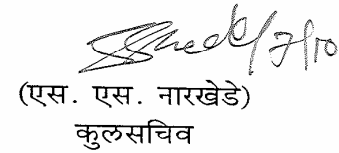 7/10
(एस. एस. नारखेडे)
कुलसचिव